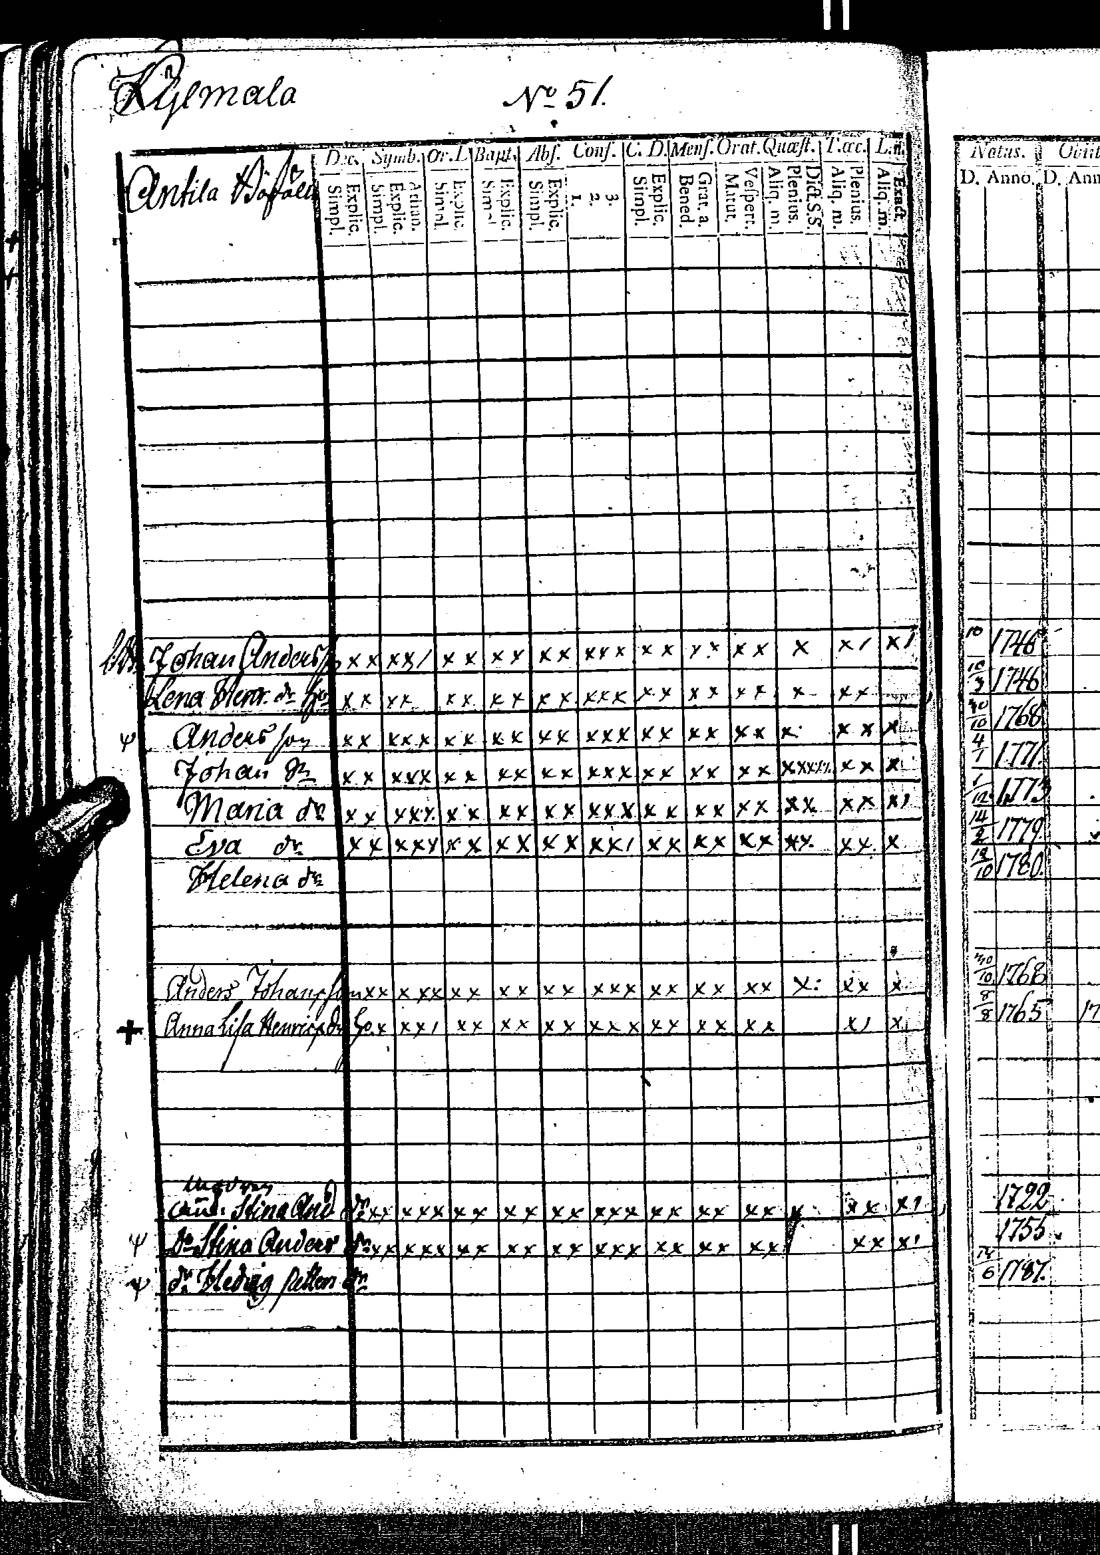 Kylmala No 51.
Dec. Symb. Or. D. Bapt. Abs. Conf. C. D. Mens. Orat. Quæst. T. œc. Natus. Obiit
Antila D. Anno. D. Ann
Simpl. Explic. Simpl. Explic. Athan. Simpl. Explic. Simpl. Explic. Simpl. Explic. 1. 2. 3. Simpl. Explic. Bened. Grat. a. Matut. Vespert. Aliq. m. Plenius. Dict. S. S. Aliq. m. Plenius. Aliq. m. Exact
Johan Anders x x x x / x x x x x x x x x x x x x x x x x / x / 10 1746
Lena Henr. dr x x x x x x x x x x x x x x x x x x x x x x 10/3 1746
Anders son x x x x x x x x x x x x x x x x x x x x x x x x 30/10 1768
Johan dn x x x x x x x x x x x x x x x x x x x x x x x 4/7 1771.
Maria dr x x x x x x x x x x x x x x x x x x x x x x x x x x 1/12 1773
Eva dr x x x x x x x x x x x x x x / x x x x x x x x x x x 14/2 1779
Helena dr 18/10 1780.
Anders Johansson x x x x x x x x x x x x x x x x x x x x x x x x 30/10 1768
+ Anna Lisa Henricsdr x x x / x x x x x x x x x x x x x x x x / x 8/8 1765 17
Stina And dr x x x x x x x x x x x x x x x x x x x x x x x x 1722
Do Stina Anders dr x x x x x x x x x x x x x x x x x x x x x x x 1755
dr Hedvig dr 14/6 1787.